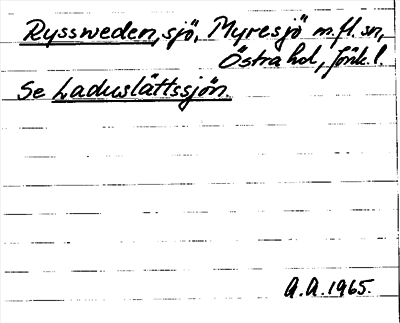 Ryssweden, sjö, Myresjö m.fl. sn,
Östra hd, Jönk.l.
Se Laduslättssjön.
A.A.1965.